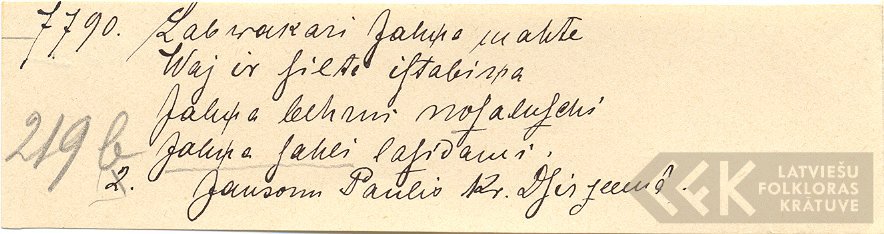 7790. Labwakari Jahņa mahte
Waj ir silta istabiņa
Jahņa behrni nosaluschi
219 b Jahņa sahli lasidami.
2. Jansonu Paulis Kr. Dsirzeemâ.
LATVIEŠU
FOLKLORAS
KRĀTUVE